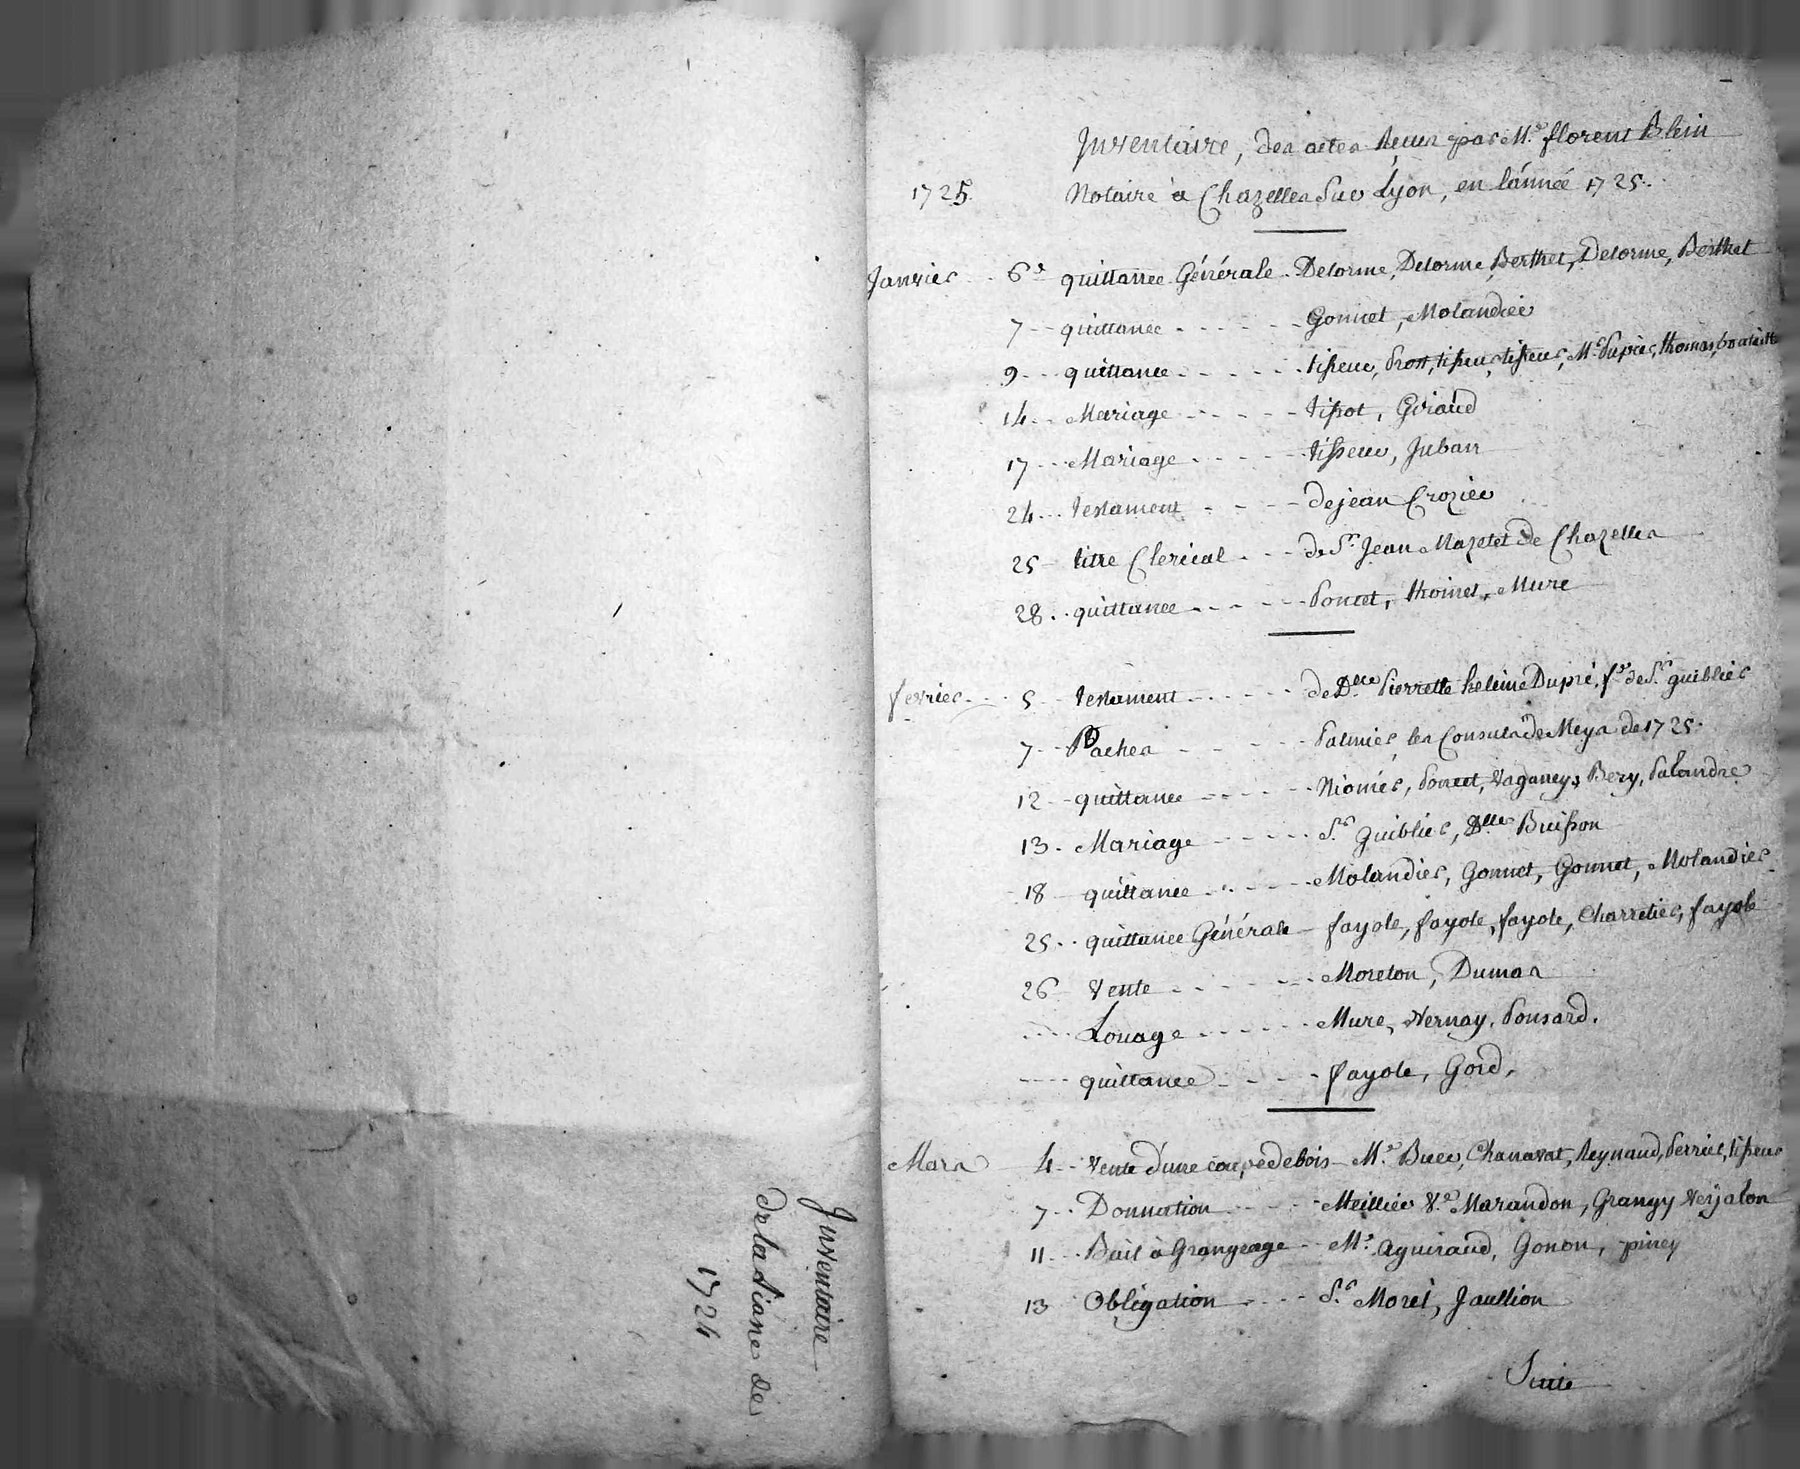 Inventaire
de la Liasse de
1724
Inventaire, des actes Recus par Me. florent Blein
1725. Notaire à Chazelles sur Lyon, en l'année 1725.
Janvier 6e quittance Générale Delorme, Delorme, Berthet, Delorme, Berthet
7 quittance Gonnet, Molandier
9 quittance tisseur, Prost, tisseur, tisseur, Me. Dupré, thomas,
14 Mariage tissot, Giraud
17 Mariage tisseur, Juban
24 testament de jean Crozier
25 titre Clerical de Sr. Jean Mazetet de Chazelles
28 quittance Poncet, thoinet, Mure
fevrier 5 testament de Dlle Pierrette heleine Dupré, fe de Sr. guiblier
7 Paches Palmier, les Consuls de Meys de 1725.
12 quittance Niomier, Poncet, Vaganey, Bery, Palandre
13 Mariage Sr. guiblier, Dlle Buisson
18 quittance Molandier, Gonnet, Gonnet, Molandier
25 quittance Générale fayole, fayole, fayole, Charretier, fayole
26 Vente Moreton, Dumas
Louage Mure, Vernay, Ponsard.
quittance fayole, Gord,
Mars 4 Vente d'une coupe de bois Me. Buer, Chanavat, Reynaud, Perrier, tisseur
7 Donnation Meillier Ve. Marandon, Grangy Veyalon
11 Bail à Grangeage Me. aguiraud, Gonon, piney
13 Obligation Sr. Morel, Jaullion
Suite